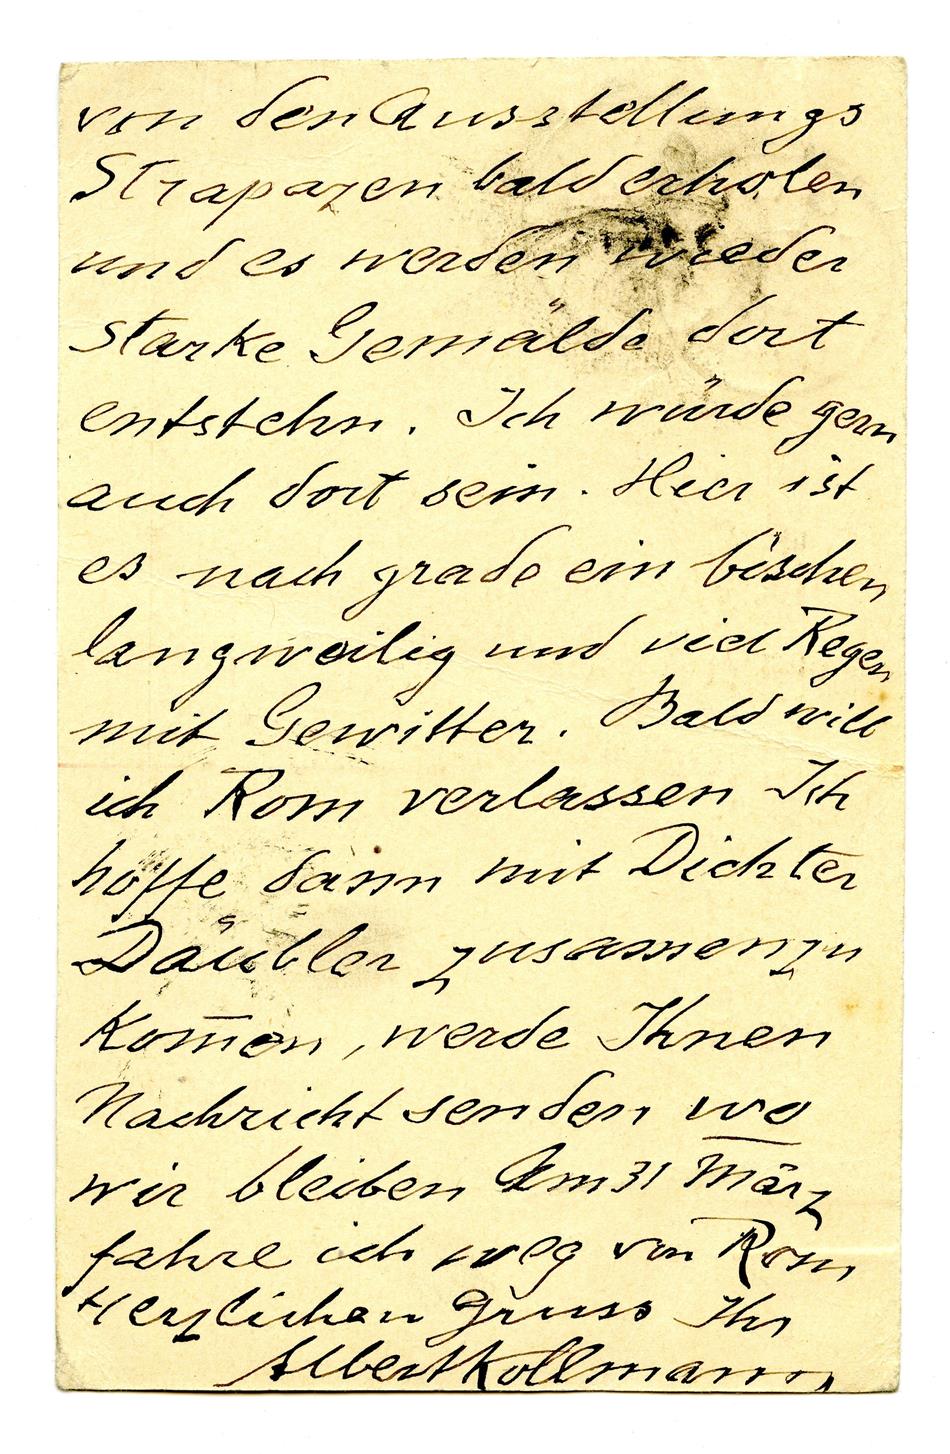 von den Ausstellungs
Strapazen bald erholen
und es werden wieder
starke Gemälde dort
entstehn. Ich würde gern
auch dort sein. Hier ist
es nach grade ein bischen
langweilig und viel Regen
mit Gewitter. Bald will
ich Rom verlassen Ich
hoffe dann mit Dichter
Däubler zusammenzu
kom̅en, werde Ihnen
Nachricht senden wo
wir bleiben Am 31 März
fahre ich weg von Rom
Herzlichen Gruss Ihr
Albert Kollmann,